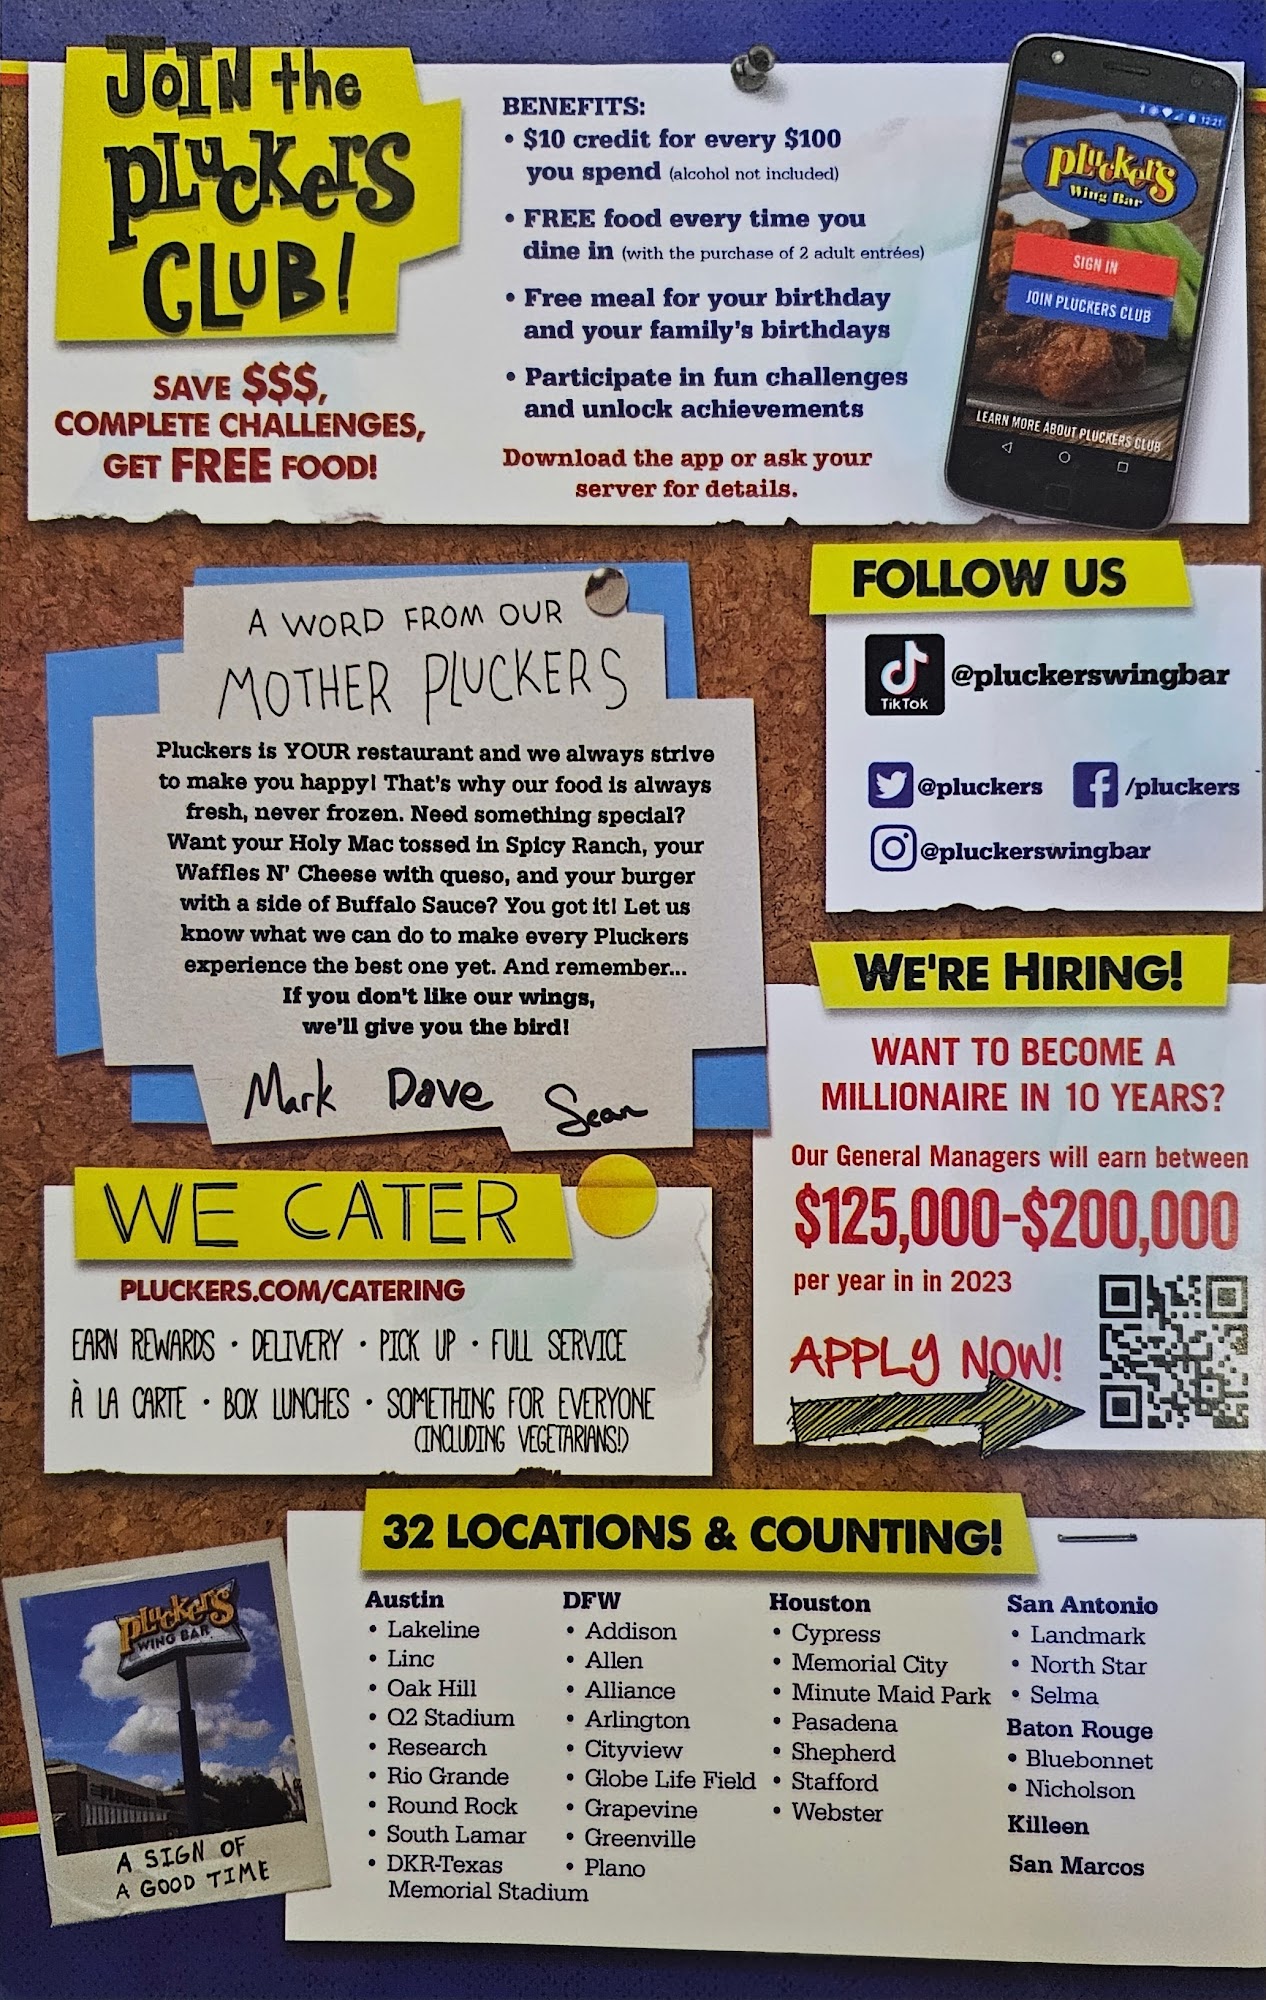 JOIN the
PLUCKERS
CLUB!
SAVE $$$,
COMPLETE CHALLENGES,
GET FREE FOOD!
BENEFITS:
• $10 credit for every $100
you spend (alcohol not included)
• FREE food every time you
dine in (with the purchase of 2 adult entrées)
• Free meal for your birthday
and your family's birthdays
• Participate in fun challenges
and unlock achievements
Download the app or ask your
server for details.
12:21
Pluckers
Wing Bar
SIGN IN
JOIN PLUCKERS CLUB
LEARN MORE ABOUT PLUCKERS CLUB
A WORD FROM OUR
MOTHER PLUCKERS
Pluckers is YOUR restaurant and we always strive
to make you happy! That's why our food is always
fresh, never frozen. Need something special?
Want your Holy Mac tossed in Spicy Ranch, your
Waffles N' Cheese with queso, and your burger
with a side of Buffalo Sauce? You got it! Let us
know what we can do to make every Pluckers
experience the best one yet. And remember...
If you don't like our wings,
we'll give you the bird!
Mark Dave Sean
FOLLOW US
TikTok @pluckerswingbar
@pluckers /pluckers
@pluckerswingbar
WE'RE HIRING!
WANT TO BECOME A
MILLIONAIRE IN 10 YEARS?
Our General Managers will earn between
$125,000-$200,000
per year in in 2023
APPLY NOW!
WE CATER
PLUCKERS.COM/CATERING
EARN REWARDS • DELIVERY • PICK UP • FULL SERVICE
À LA CARTE • BOX LUNCHES • SOMETHING FOR EVERYONE
(INCLUDING VEGETARIANS!)
32 LOCATIONS & COUNTING!
Austin
• Lakeline
• Linc
• Oak Hill
• Q2 Stadium
• Research
• Rio Grande
• Round Rock
• South Lamar
• DKR-Texas
Memorial Stadium
DFW
• Addison
• Allen
• Alliance
• Arlington
• Cityview
• Globe Life Field
• Grapevine
• Greenville
• Plano
Houston
• Cypress
• Memorial City
• Minute Maid Park
• Pasadena
• Shepherd
• Stafford
• Webster
San Antonio
• Landmark
• North Star
• Selma
Baton Rouge
• Bluebonnet
• Nicholson
Killeen
San Marcos
PLUCKERS
WING BAR
A SIGN OF
A GOOD TIME